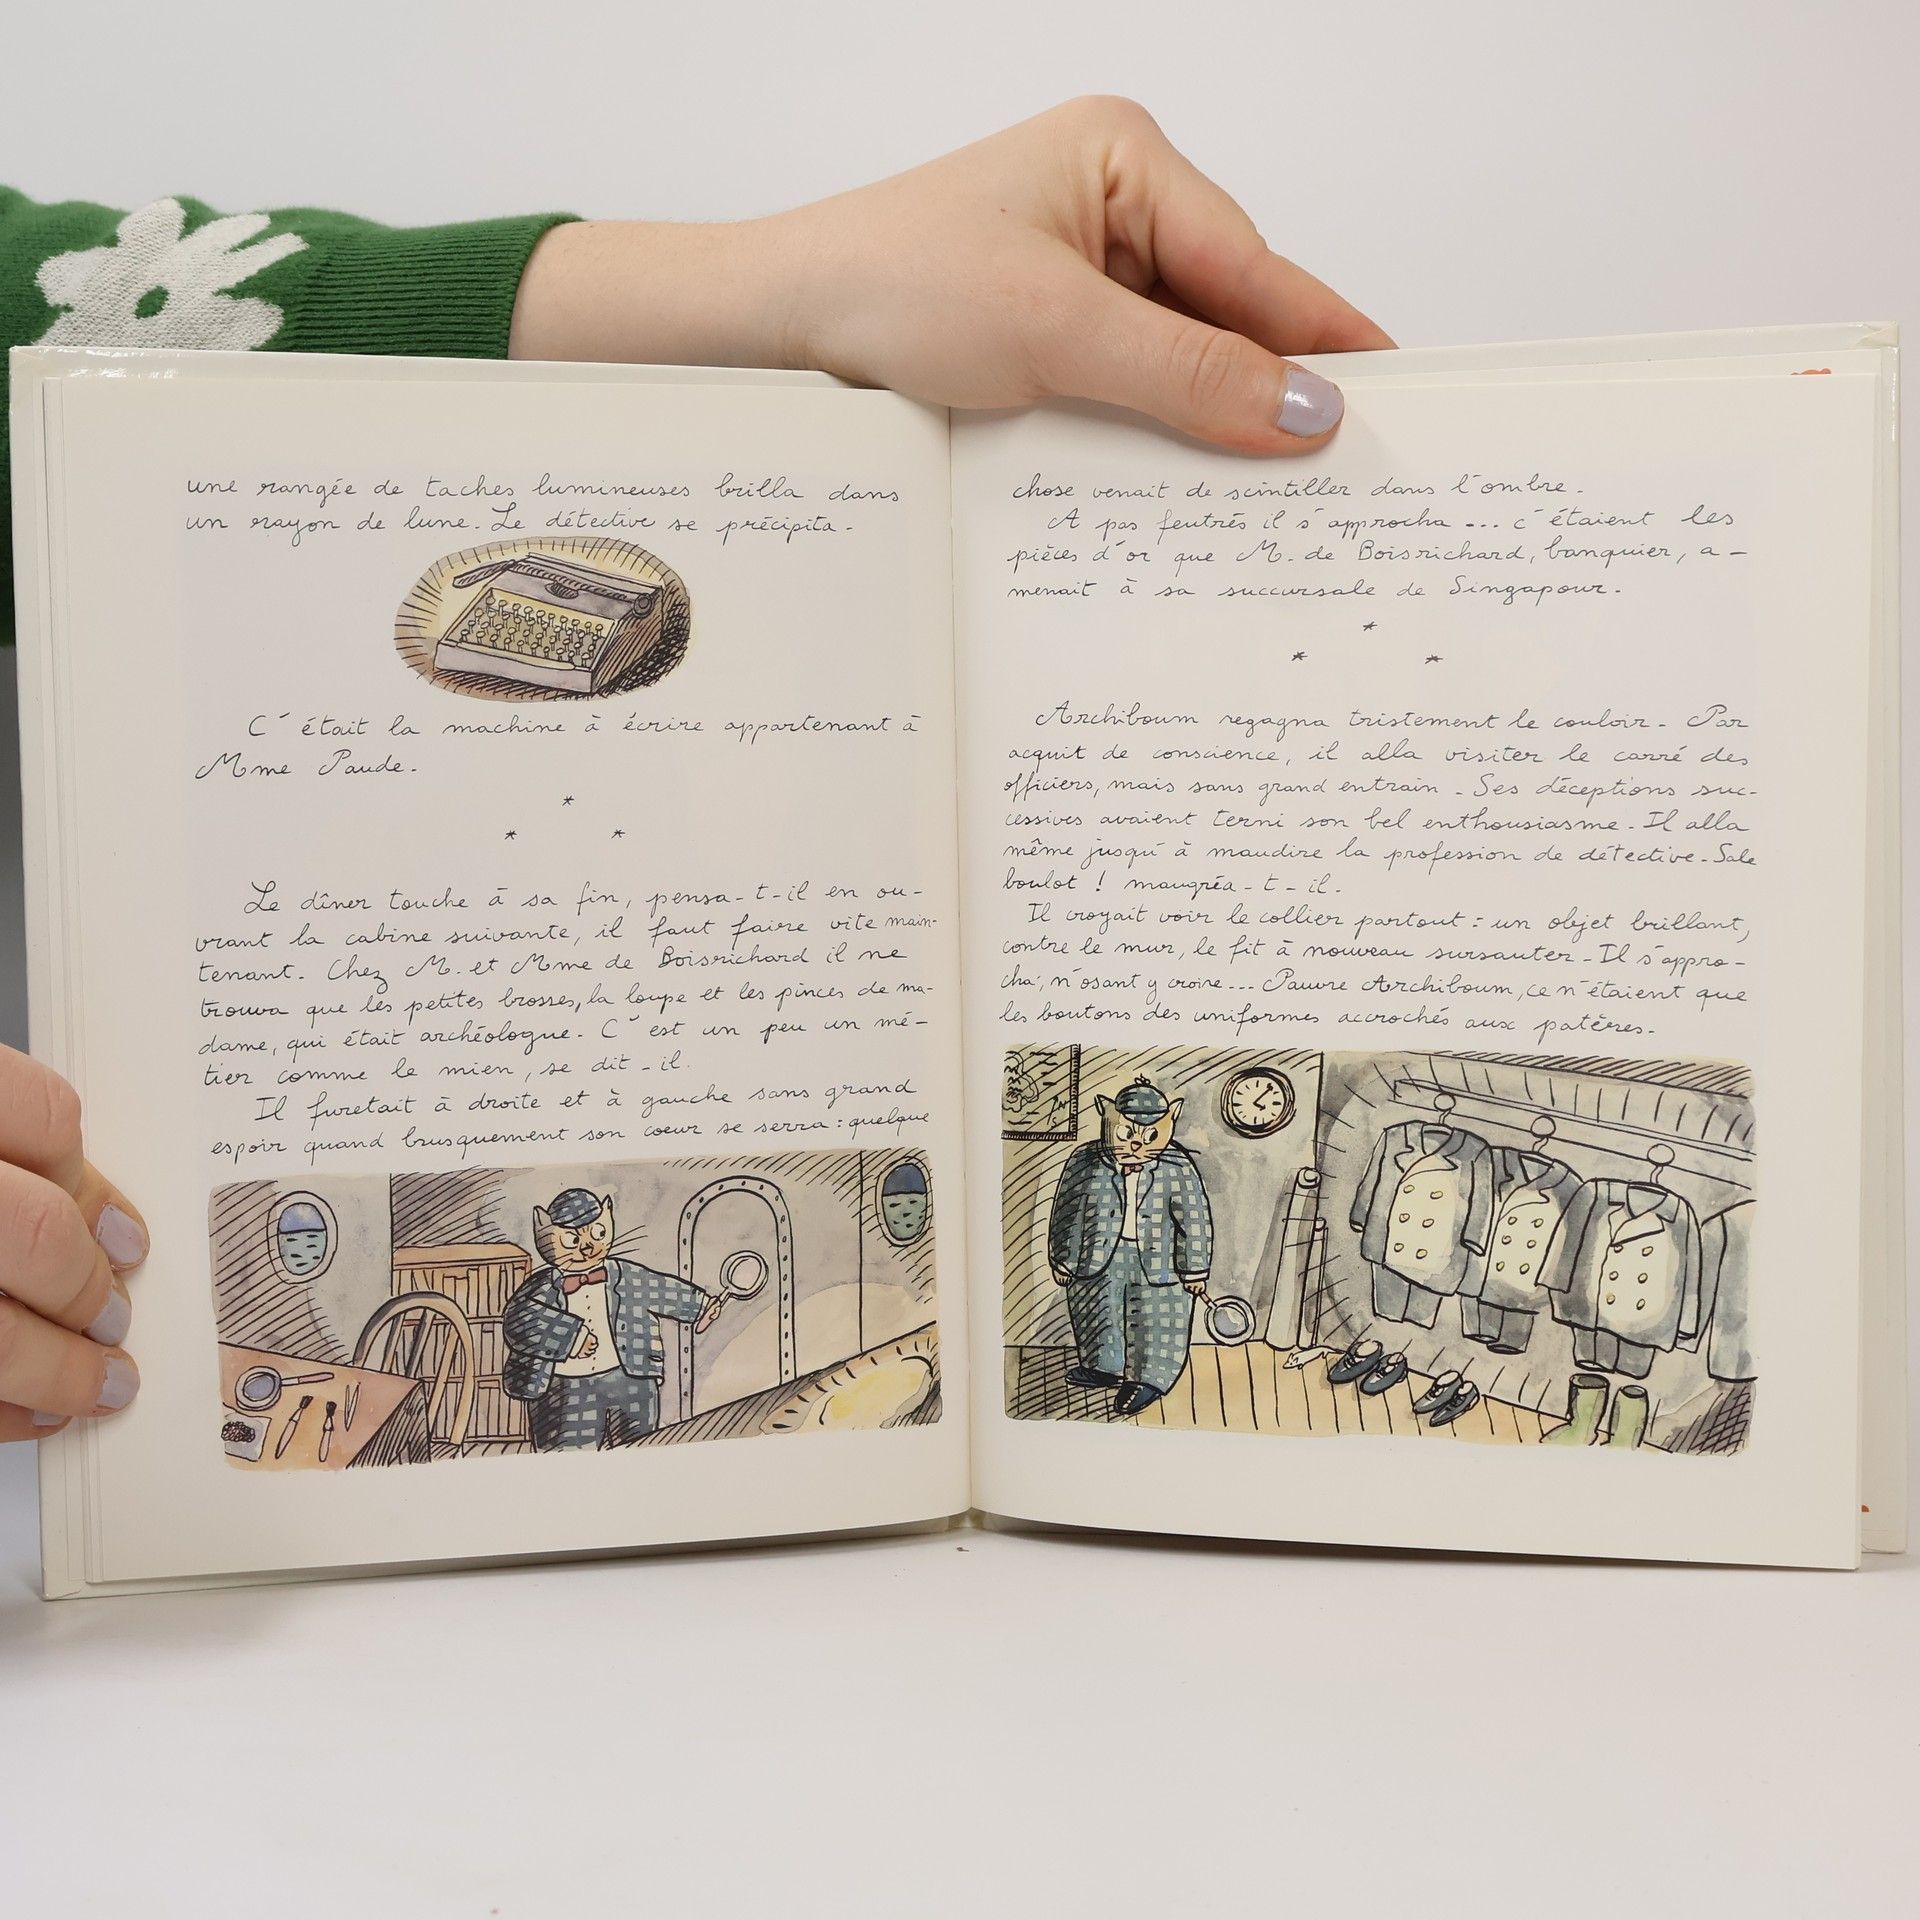 une rangée de taches lumineuses brilla dans
un rayon de lune. Le détective se précipita.
C'était la machine à écrire appartenant à
Mme Paude.
*
* *
Le dîner touche à sa fin, pensa-t-il en ou-
vrant la cabine suivante, il faut faire vite main-
tenant. Chez M. et Mme de Boisrichard il ne
trouva que les petites brosses, la loupe et les pinces de ma-
dame, qui était archéologue. C'est un peu un mé-
tier comme le mien, se dit-il.
Il furetait à droite et à gauche sans grand
espoir quand brusquement son cœur se serra : quelque
chose venait de scintiller dans l'ombre.
A pas feutrés il s'approcha... c'étaient les
pièces d'or que M. de Boisrichard, banquier, a-
menait à sa succursale de Singapour.
*
* *
Archiboum regagna tristement le couloir. Par
acquit de conscience, il alla visiter le carré des
officiers, mais sans grand entrain. Ses déceptions suc-
cessives avaient terni son bel enthousiasme. Il alla
même jusqu'à maudire la profession de détective. Sale
boulot ! maugréa-t-il.
Il croyait voir le collier partout : un objet brillant,
contre le mur, le fit à nouveau sursauter. Il s'appro-
cha, n'osant y croire... Pauvre Archiboum, ce n'étaient que
les boutons des uniformes accrochés aux patères.